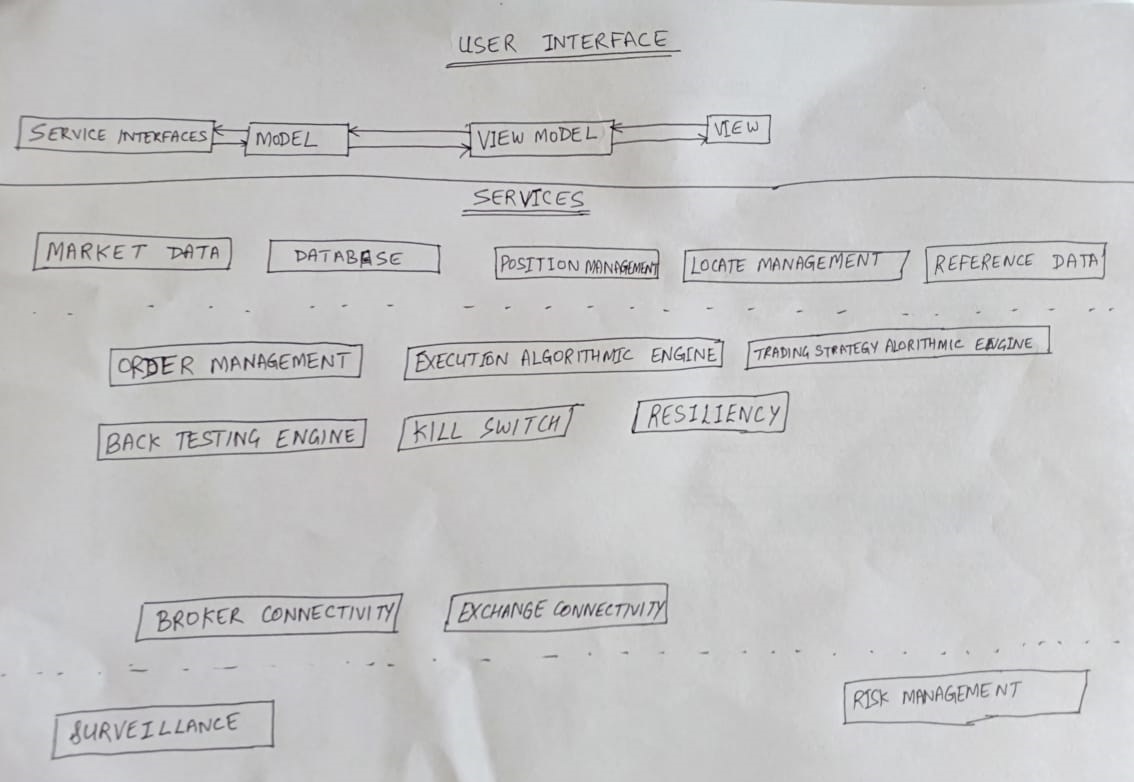 USER INTERFACE
SERVICE INTERFACES MODEL VIEW MODEL VIEW
SERVICES
MARKET DATA DATABASE POSITION MANAGEMENT LOCATE MANAGEMENT REFERENCE DATA
ORDER MANAGEMENT EXECUTION ALGORITHMIC ENGINE TRADING STRATEGY ALORITHMIC ENGINE
BACK TESTING ENGINE KILL SWITCH RESILIENCY
BROKER CONNECTIVITY EXCHANGE CONNECTIVITY
SURVEILLANCE RISK MANAGEMENT